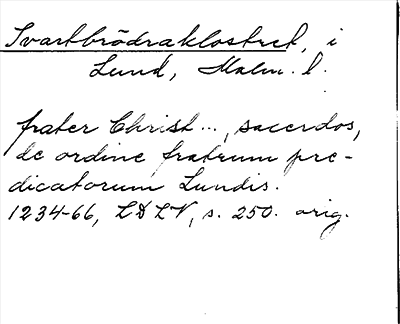 Svartbrödraklostret, i
Lund, Malm. l.
frater Christ..., sacerdos,
de ordine fratrum pre-
dicatorum Lundis.
1234-66, LDLV, s. 250. orig.